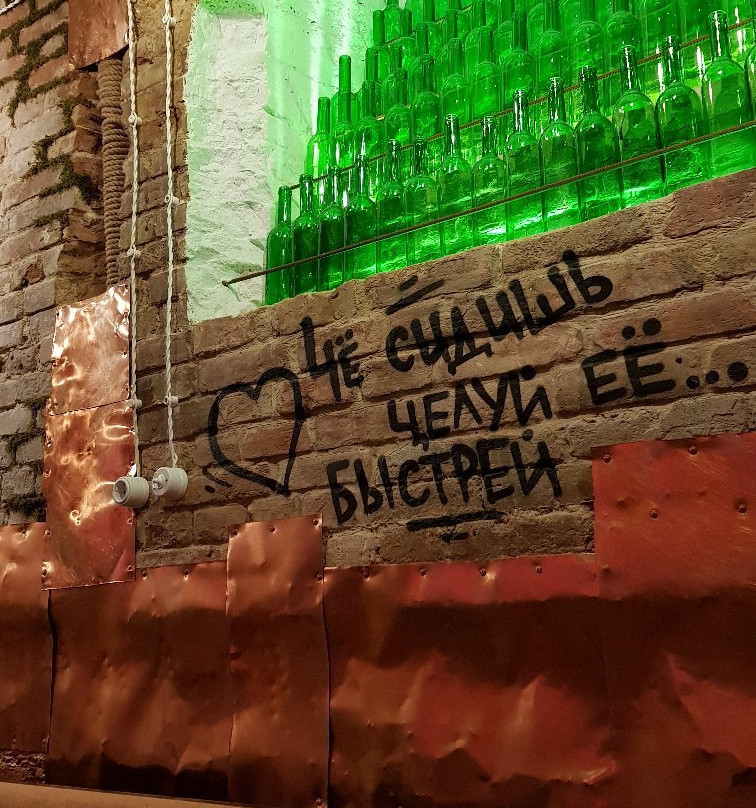 ЧЁ СИДИШЬ
ЦЕЛУЙ ЕЁ...
БЫСТРЕЙ